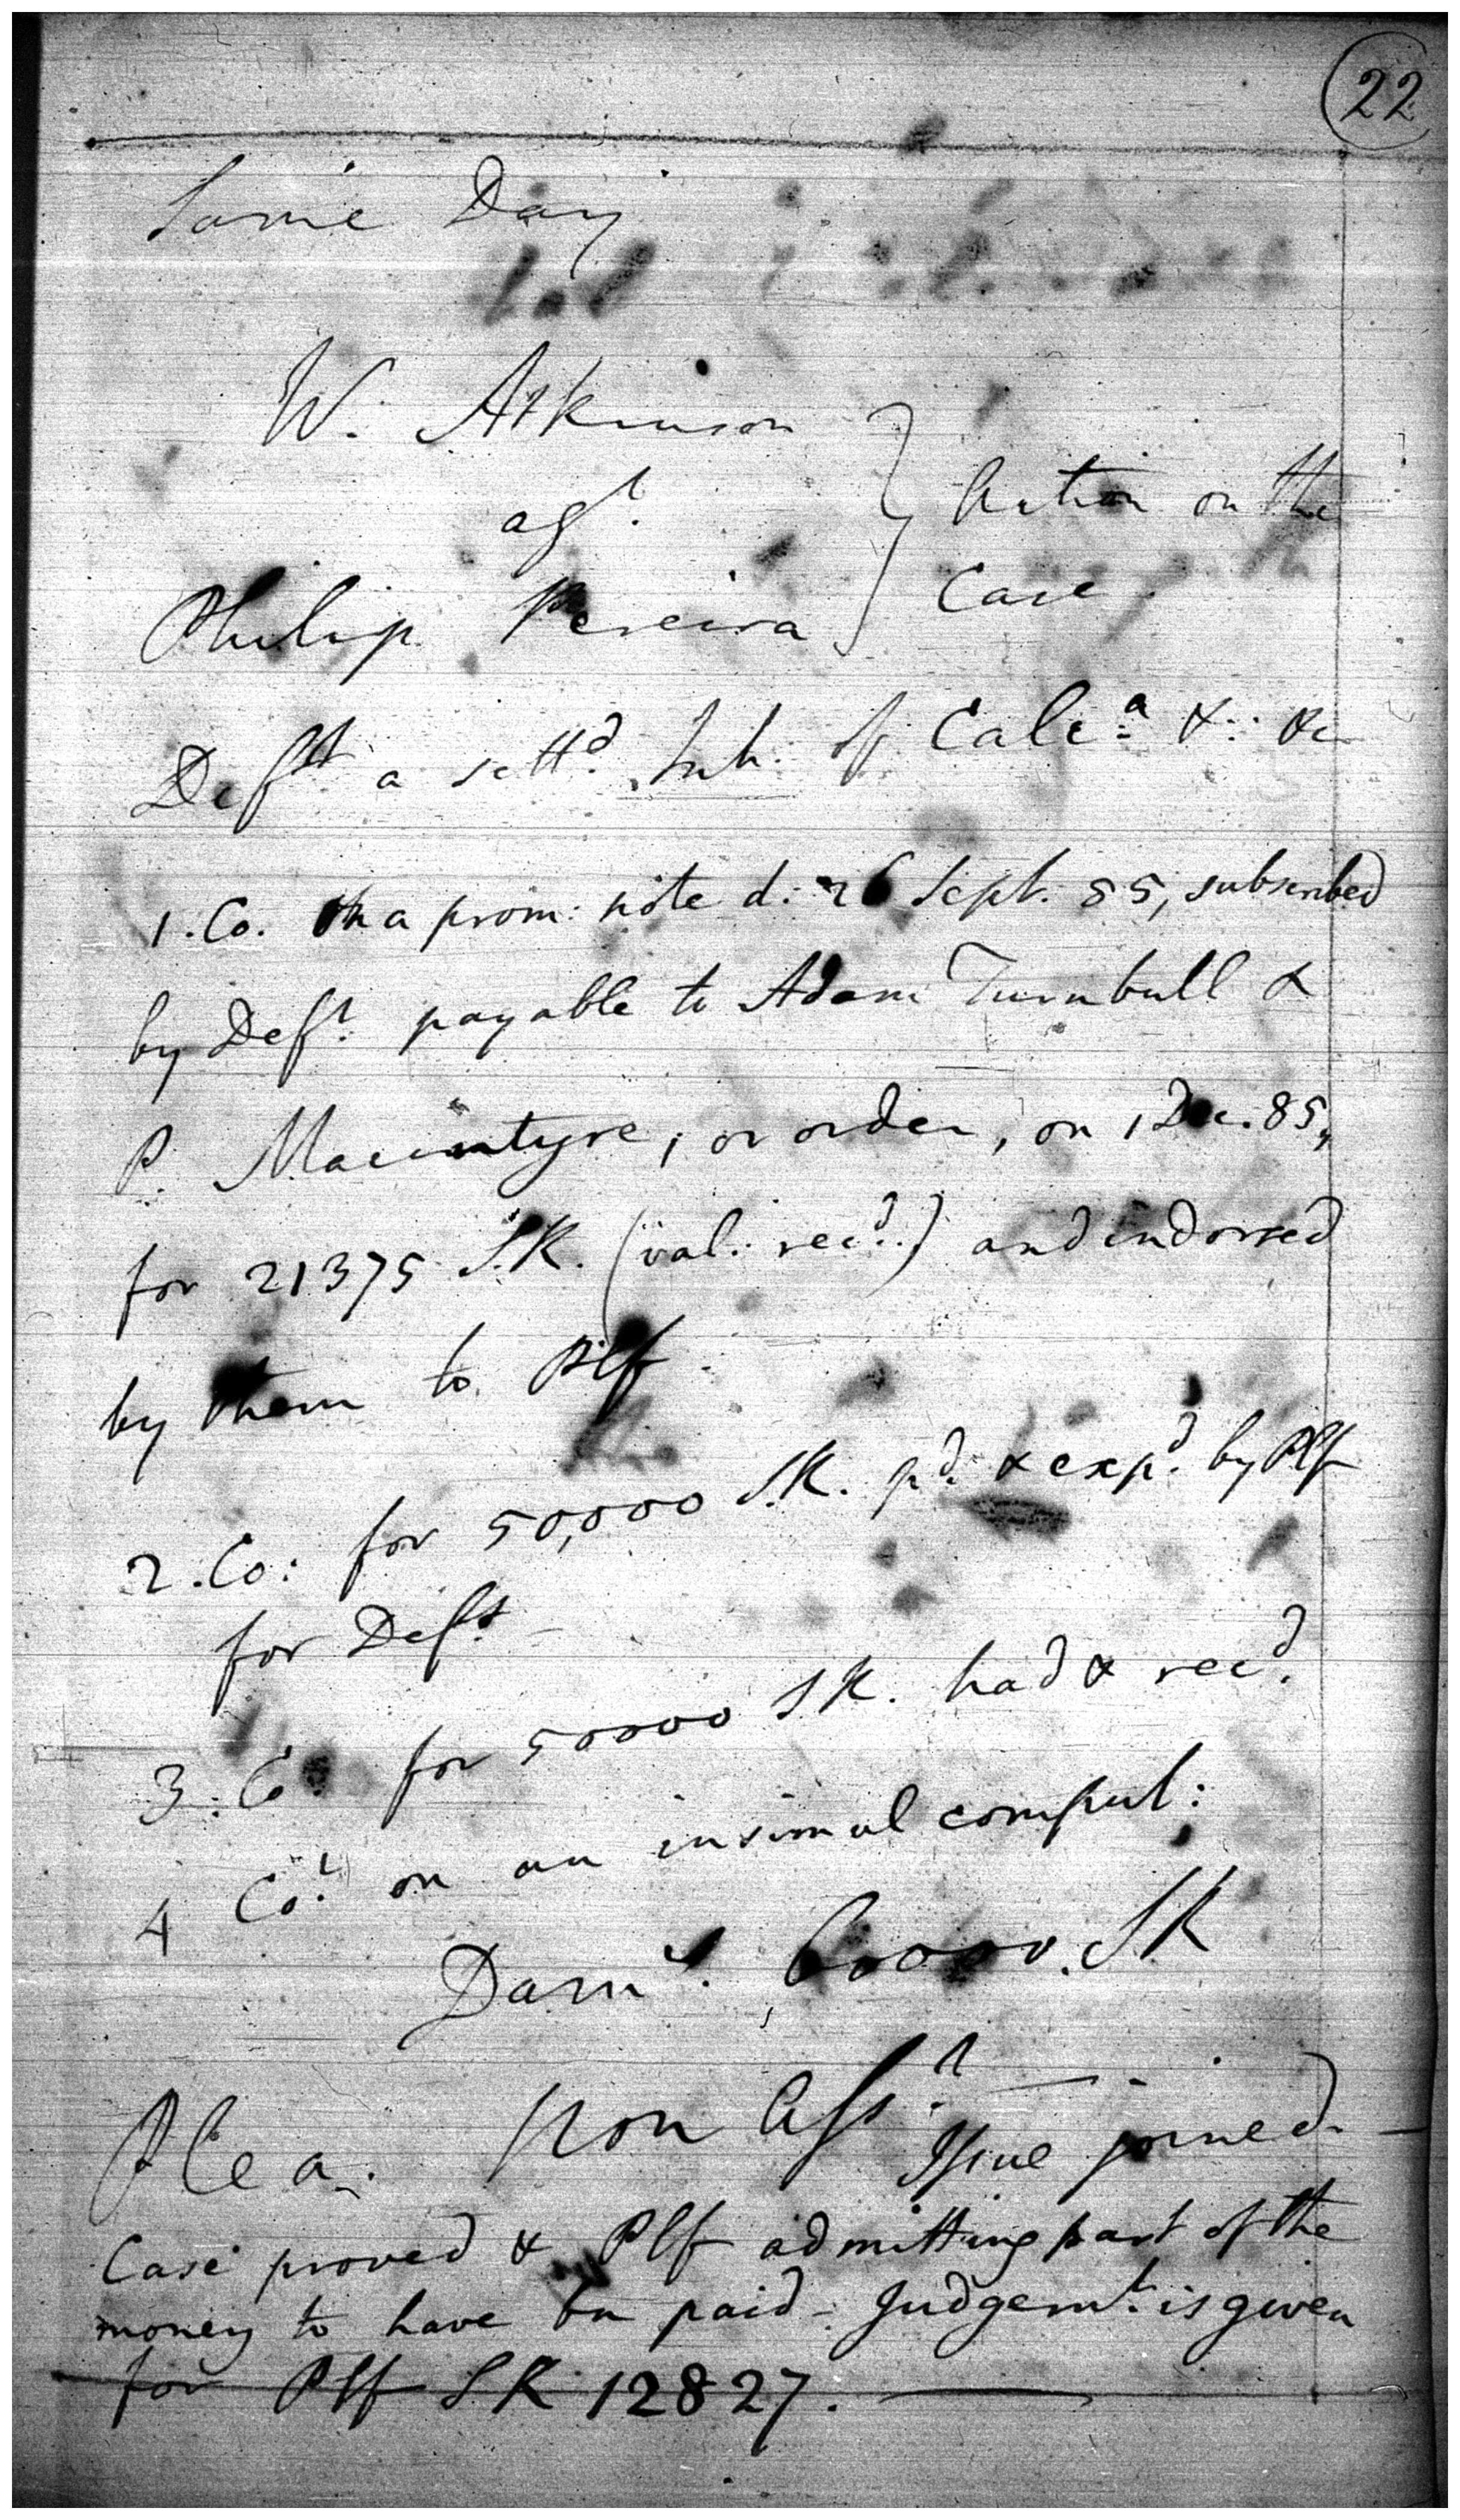 22
Same Day
W. Atkinson
agt.
Philip Pereira
} Action on the
Case.
Deft a settd. Inh. of Calca. &: &c
1. Co. On a prom: note d: 26 Sept. 85, subscribed
by Deft. payable to Adam Turnbull &
P. Macintyre, or order, on 1 Dec. 85,
for 21375 S.R. (val: recd.) and indorsed
by them to Plf.
2. Co: for 50,000 S.R. pd. & expd. by Plf
for Deft
3. Co. for 50000 S R. had & recd.
4 Cot. on an insimul comput:
Dams. 60000. S R
Plea. Non Asst. —
Issue joined. —
Case proved & Plf admitting part of the
money to have bn paid - Judgemt. is given
for Plf S R 12827. —